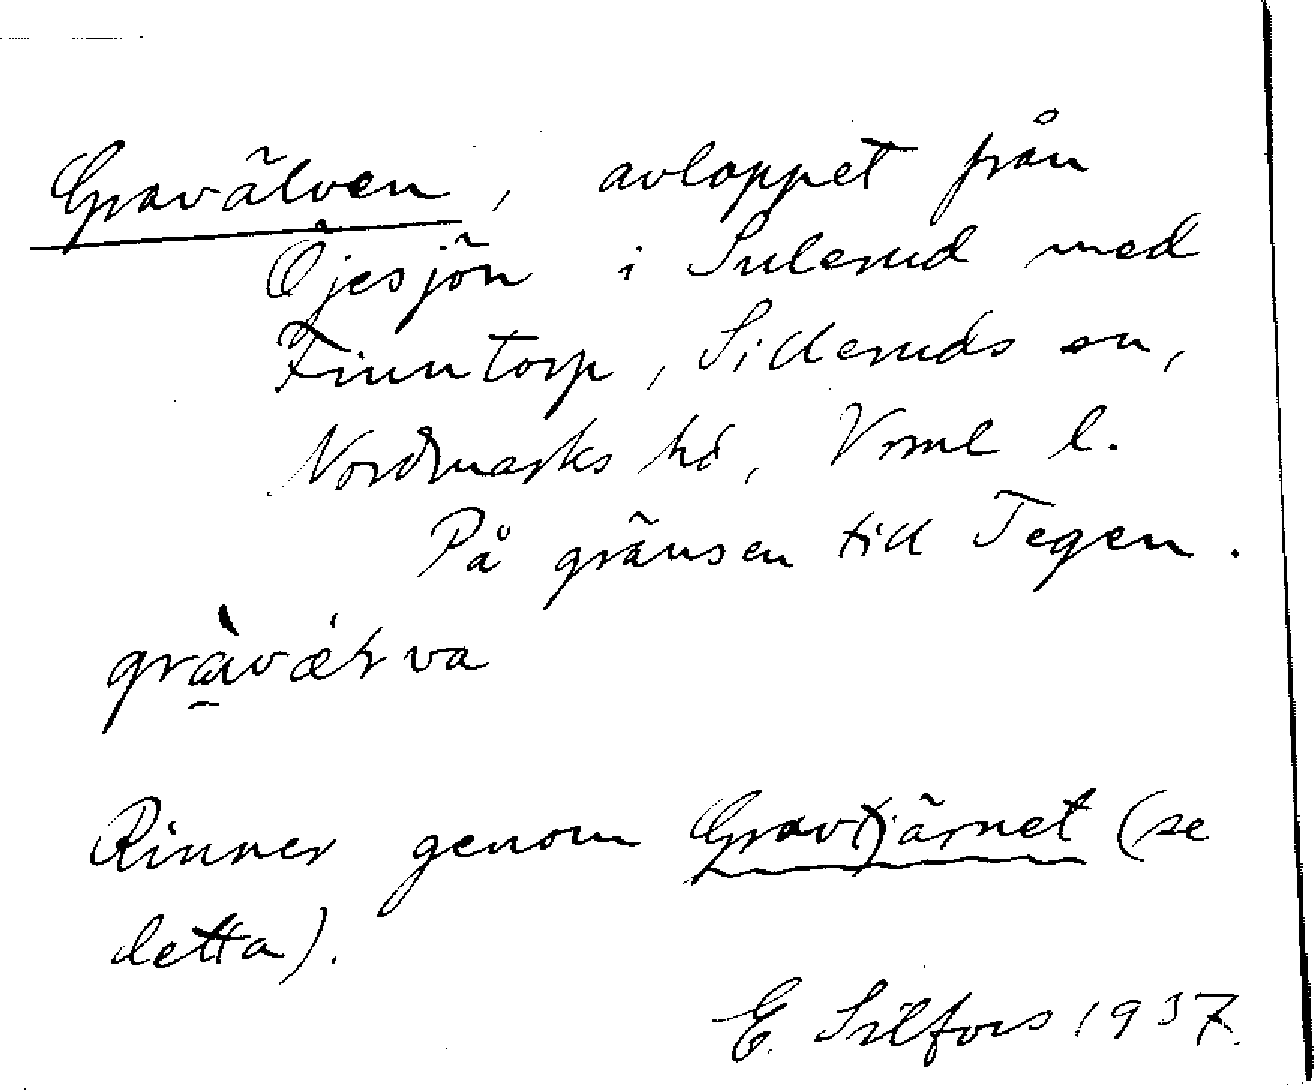 Gravälven, avloppet från
Öjesjön i Sulerud med
Finntorp, Silleruds sn,
Nordmarks hd, Vrml l.
På gränsen till Tegen.
gràvæ̀ɫva
Rinner genom Gravtjärnet (se
detta).
E. Silfors 1937.